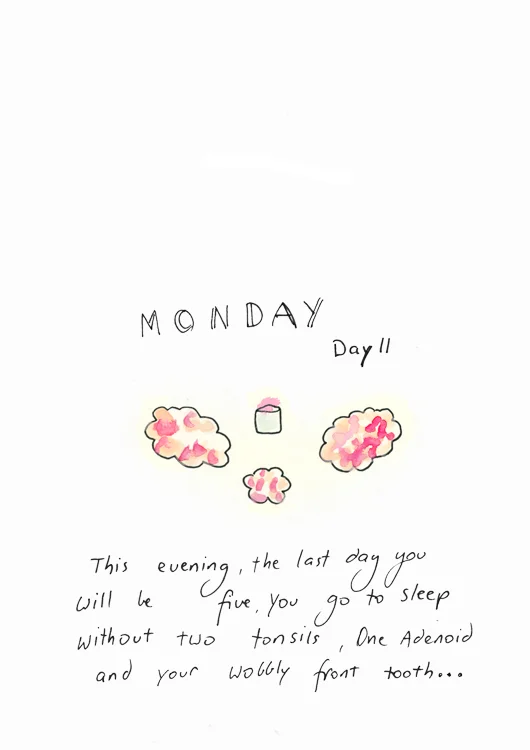 MONDAY
Day 11
This evening, the last day you
will be five, you go to sleep
without two tonsils, One Adenoid
and your wobbly front tooth...